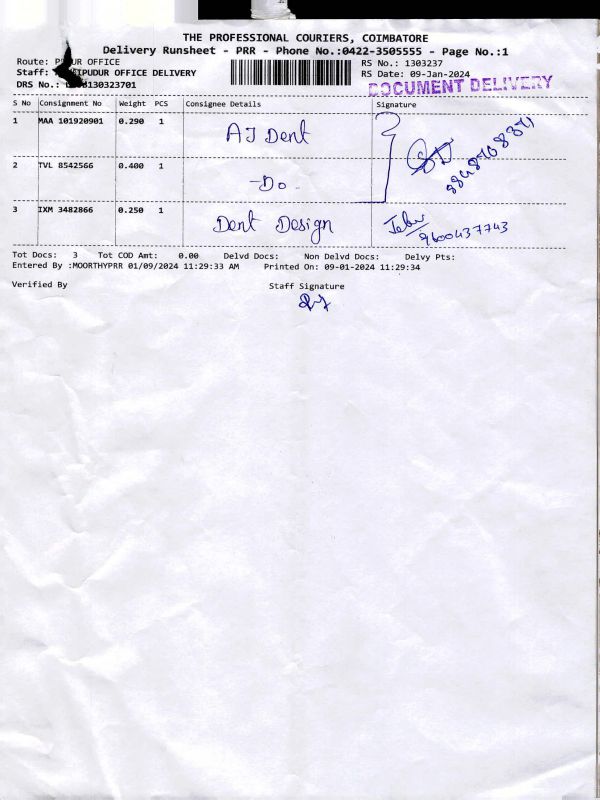 THE PROFESSIONAL COURIERS, COIMBATORE
Delivery Runsheet - PRR - Phone No.:0422-3505555 - Page No.:1
Route: OFFICE
RS No.: 1303237
Staff: OFFICE DELIVERY
RS Date: 09-Jan-2024
DRS No.:
DOCUMENT DELIVERY
S No Consignment No Weight PCS Consignee Details Signature
1 MAA 101920901 0.290 1 AJ Dent
2 TVL 8542566 0.400 1 -Do-
3 IXM 3482866 0.250 1 Dent Design 9600437743
Tot Docs: 3 Tot COD Amt: 0.00 Delvd Docs: Non Delvd Docs: Delvy Pts:
Entered By :MOORTHYPRR 01/09/2024 11:29:33 AM Printed On: 09-01-2024 11:29:34
Verified By Staff Signature